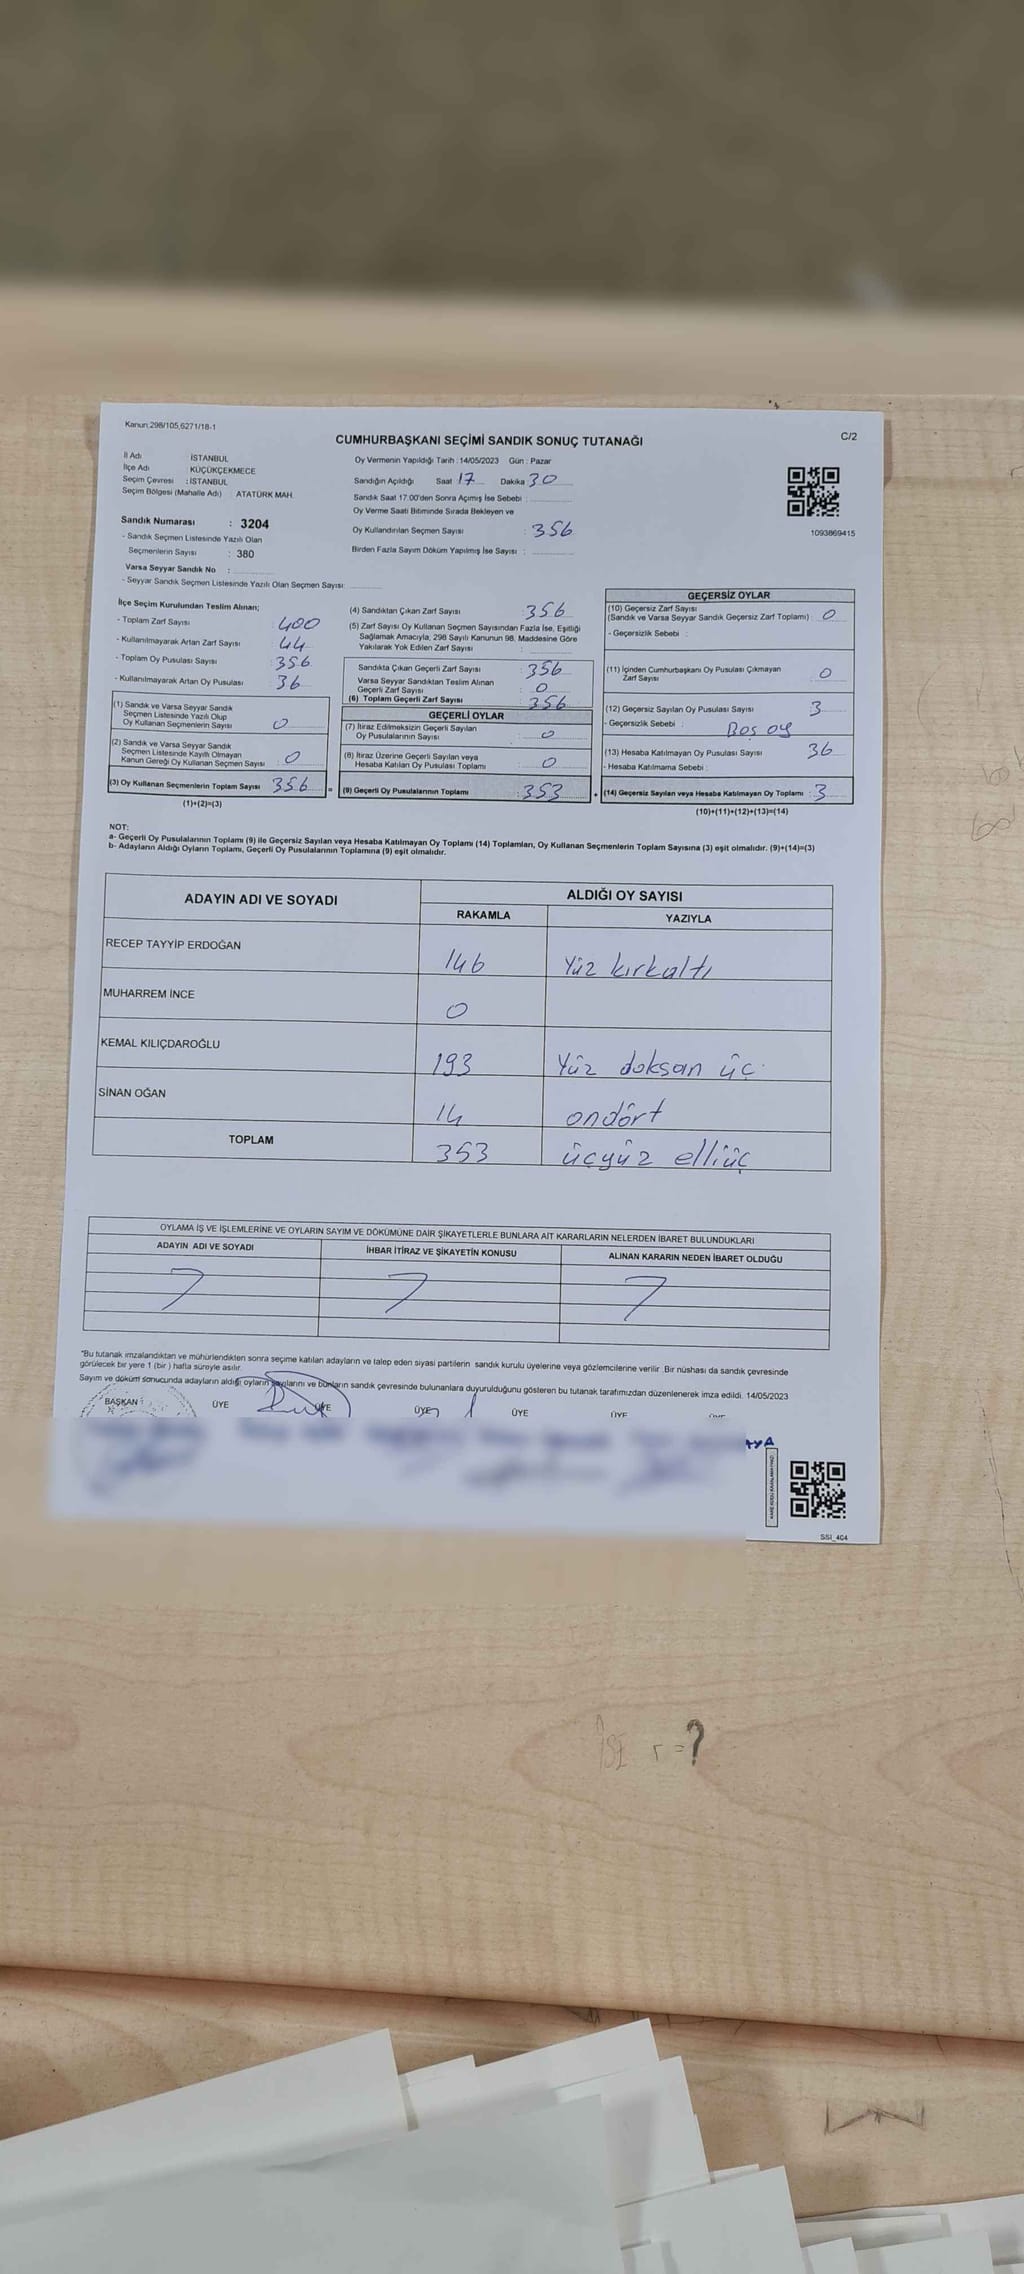 Kanun,298/105,6271/18-1
C/2
CUMHURBAŞKANI SEÇİMİ SANDIK SONUÇ TUTANAĞI
İl Adı İSTANBUL
İlçe Adı KÜÇÜKÇEKMECE
Seçim Çevresi : İSTANBUL
Seçim Bölgesi (Mahalle Adı) ATATÜRK MAH.
Sandık Numarası : 3204
- Sandık Seçmen Listesinde Yazılı Olan
Seçmenlerin Sayısı : 380
Varsa Seyyar Sandık No :
- Seyyar Sandık Seçmen Listesinde Yazılı Olan Seçmen Sayısı:
Oy Vermenin Yapıldığı Tarih : 14/05/2023 Gün : Pazar
Sandığın Açıldığı Saat 17 Dakika 30
Sandık Saat 17.00'den Sonra Açımış İse Sebebi :
Oy Verme Saati Bitiminde Sırada Bekleyen ve
Oy Kullandırılan Seçmen Sayısı : 356
Birden Fazla Sayım Döküm Yapılmış İse Sayısı :
1093869415
İlçe Seçim Kurulundan Teslim Alınan;
- Toplam Zarf Sayısı : 400
- Kullanılmayarak Artan Zarf Sayısı : 44
- Toplam Oy Pusulası Sayısı : 356
- Kullanılmayarak Artan Oy Pusulası : 36
(1) Sandık ve Varsa Seyyar Sandık
Seçmen Listesinde Yazılı Olup
Oy Kullanan Seçmenlerin Sayısı : 0
(2) Sandık ve Varsa Seyyar Sandık
Seçmen Listesinde Kayıtlı Olmayan
Kanun Gereği Oy Kullanan Seçmen Sayısı : 0
(3) Oy Kullanan Seçmenlerin Toplam Sayısı : 356
(1)+(2)=(3)
(4) Sandıktan Çıkan Zarf Sayısı : 356
(5) Zarf Sayısı Oy Kullanan Seçmen Sayısından Fazla İse, Eşitliği
Sağlamak Amacıyla, 298 Sayılı Kanunun 98. Maddesine Göre
Yakılarak Yok Edilen Zarf Sayısı :
Sandıkta Çıkan Geçerli Zarf Sayısı : 356
Varsa Seyyar Sandıktan Teslim Alınan
Geçerli Zarf Sayısı : 0
(6) Toplam Geçerli Zarf Sayısı : 356
GEÇERLİ OYLAR
(7) İtiraz Edilmeksizin Geçerli Sayılan
Oy Pusulalarının Sayısı : 0
(8) İtiraz Üzerine Geçerli Sayılan veya
Hesaba Katılan Oy Pusulası Toplamı : 0
= (9) Geçerli Oy Pusulalarının Toplamı : 353 +
GEÇERSİZ OYLAR
(10) Geçersiz Zarf Sayısı
(Sandık ve Varsa Seyyar Sandık Geçersiz Zarf Toplamı) : 0
- Geçersizlik Sebebi :
(11) İçinden Cumhurbaşkanı Oy Pusulası Çıkmayan
Zarf Sayısı : 0
(12) Geçersiz Sayılan Oy Pusulası Sayısı : 3
- Geçersizlik Sebebi : Boş oy
(13) Hesaba Katılmayan Oy Pusulası Sayısı : 36
- Hesaba Katılmama Sebebi :
(14) Geçersiz Sayılan veya Hesaba Katılmayan Oy Toplamı : 3
(10)+(11)+(12)+(13)=(14)
NOT:
a- Geçerli Oy Pusulalarının Toplamı (9) ile Geçersiz Sayılan veya Hesaba Katılmayan Oy Toplamı (14) Toplamları, Oy Kullanan Seçmenlerin Toplam Sayısına (3) eşit olmalıdır. (9)+(14)=(3)
b- Adayların Aldığı Oyların Toplamı, Geçerli Oy Pusulalarının Toplamına (9) eşit olmalıdır.
ADAYIN ADI VE SOYADI ALDIĞI OY SAYISI
RAKAMLA YAZIYLA
RECEP TAYYİP ERDOĞAN 146 Yüz kırkaltı
MUHARREM İNCE 0
KEMAL KILIÇDAROĞLU 193 Yüz doksan üç
SİNAN OĞAN 14 ondört
TOPLAM 353 üçyüz elliüç
OYLAMA İŞ VE İŞLEMLERİNE VE OYLARIN SAYIM VE DÖKÜMÜNE DAİR ŞİKAYETLERLE BUNLARA AİT KARARLARIN NELERDEN İBARET BULUNDUKLARI
ADAYIN ADI VE SOYADI İHBAR İTİRAZ VE ŞİKAYETİN KONUSU ALINAN KARARIN NEDEN İBARET OLDUĞU
"Bu tutanak imzalandıktan ve mühürlendikten sonra seçime katılan adayların ve talep eden siyasi partilerin sandık kurulu üyelerine veya gözlemcilerine verilir. Bir nüshası da sandık çevresinde
görülecek bir yere 1 (bir) hafta süreyle asılır.
Sayım ve döküm sonucunda adayların aldığı oyların sayılarını ve bunların sandık çevresinde bulunanlara duyurulduğunu gösteren bu tutanak tarafımızdan düzenlenerek imza edildi. 14/05/2023
BAŞKAN ÜYE ÜYE ÜYE ÜYE ÜYE ÜYE
AYA
SSI_404
İSE r=?